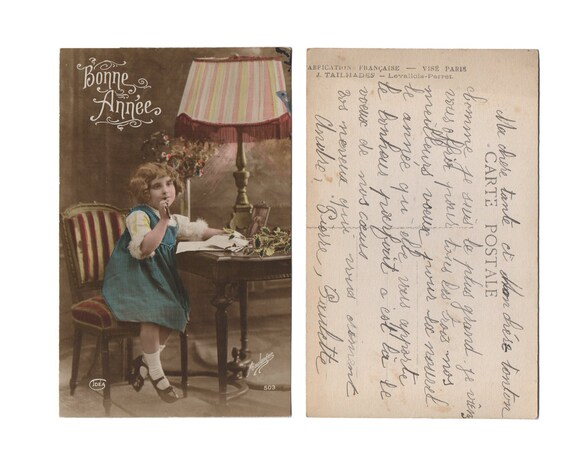 Bonne
Année
IDEA
503
ABRICATIONS FRANÇAISE — VISÉ PARIS
J. TAILHADES — Levallois-Perret.
CARTE POSTALE
Ma chère tante et Mon chère tonton
Comme je suis le plus grand je viens
vous offrir pour tous les trois nos
meilleurs voeux pour la nouvel
le année qu'elle vous apporte
le bonheur parfait c'est la le
voeux de nos cœurs
vos neveux qui vous aiment
André, Pierre, Paulette